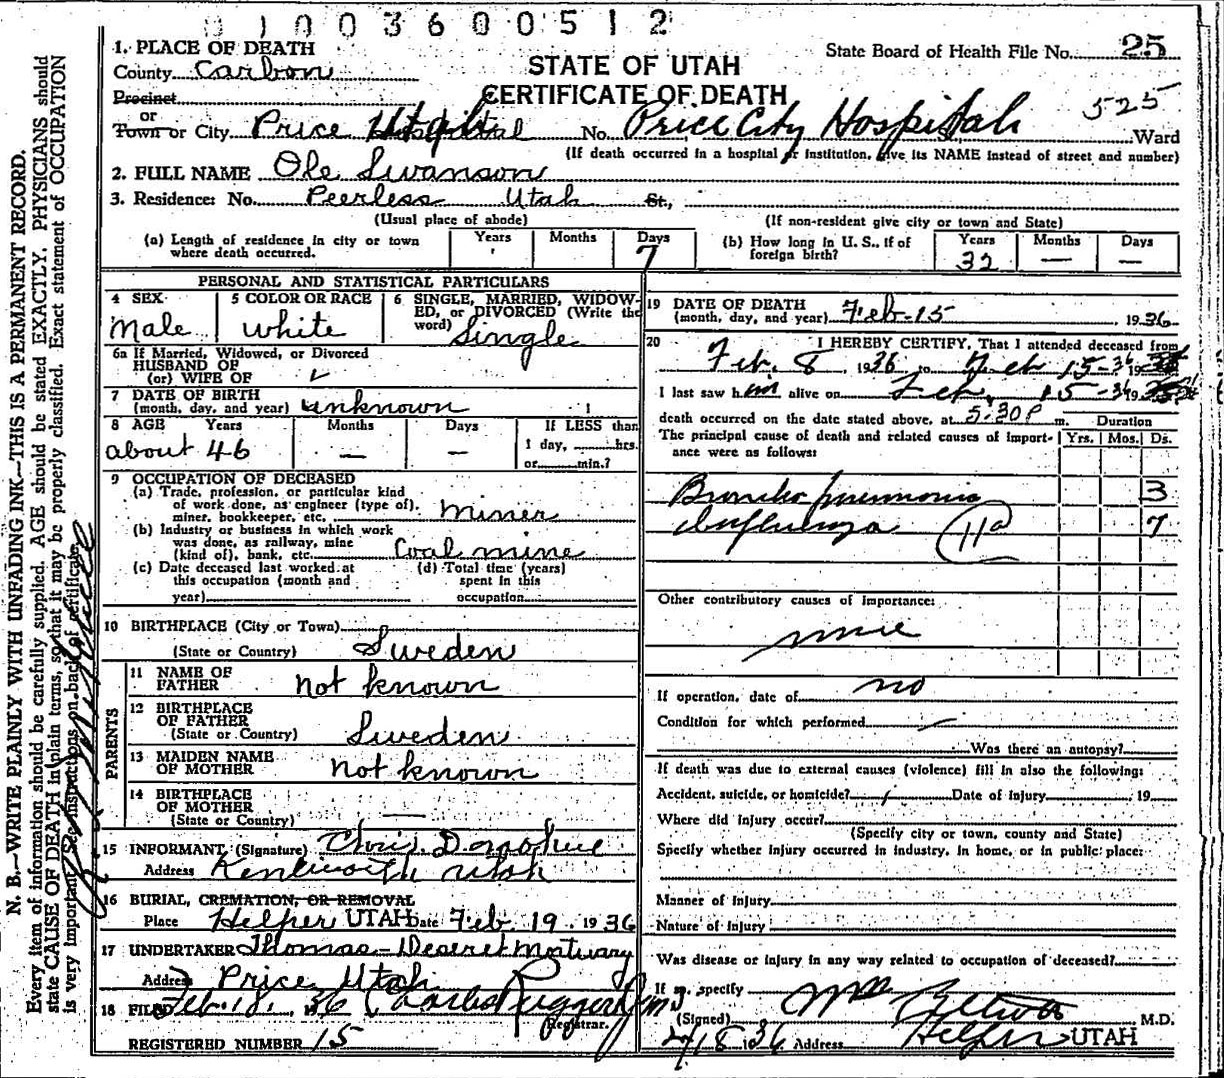 0 1 0 0 3 6 0 0 5 1 2
1. PLACE OF DEATH
State Board of Health File No. 25
County Carbon
STATE OF UTAH
Precinct
CERTIFICATE OF DEATH
525
or
Town or City Price Utah No. Price City Hospital Ward
(If death occurred in a hospital or institution, give its NAME instead of street and number)
2. FULL NAME Ole Swanson
3. Residence: No. Peerless Utah St.,
(Usual place of abode) (If non-resident give city or town and State)
(a) Length of residence in city or town where death occurred. Years Months Days 7
(b) How long in U. S., if of foreign birth? Years 32 Months — Days —
PERSONAL AND STATISTICAL PARTICULARS
4 SEX Male
5 COLOR OR RACE white
6 SINGLE, MARRIED, WIDOWED, or DIVORCED (Write the word) Single
6a If Married, Widowed, or Divorced
HUSBAND OF
(or) WIFE OF
7 DATE OF BIRTH
(month, day, and year) unknown
8 AGE Years Months Days If LESS than
about 46 — — 1 day, hrs.
or min.?
9 OCCUPATION OF DECEASED
(a) Trade, profession, or particular kind
of work done, as engineer (type of),
miner, bookkeeper, etc. miner
(b) Industry or business in which work
was done, as railway, mine
(kind of), bank, etc. Coal mine
(c) Date deceased last worked at
this occupation (month and
year)
(d) Total time (years)
spent in this
occupation
10 BIRTHPLACE (City or Town)
(State or Country) Sweden
PARENTS
11 NAME OF
FATHER not known
12 BIRTHPLACE
OF FATHER
(State or Country) Sweden
13 MAIDEN NAME
OF MOTHER not known
14 BIRTHPLACE
OF MOTHER
(State or Country) —
15 INFORMANT (Signature) Chris Donoshue
Address Kenilworth Utah
16 BURIAL, CREMATION, OR REMOVAL
Place Helper UTAH Date Feb. 19. 1936
17 UNDERTAKER Thomas - Deseret Mortuary
Address Price Utah
18 FILED Feb. 18, 1936 Charles Ruggeri Jr.
Registrar.
REGISTERED NUMBER 15
19 DATE OF DEATH
(month, day, and year) Feb-15 1936
20 I HEREBY CERTIFY, That I attended deceased from
Feb. 8, 1936 to Feb 15-36
I last saw him alive on Feb, 15-36
death occurred on the date stated above, at 5:30 P m. Duration
The principal cause of death and related causes of importance were as follows: Yrs. Mos. Ds.
Broncho pneumonia 3
Influenza 11a 7
Other contributory causes of importance:
none
If operation, date of no
Condition for which performed —
Was there an autopsy?
If death was due to external causes (violence) fill in also the following:
Accident, suicide, or homicide? Date of injury 19
Where did injury occur?
(Specify city or town, county and State)
Specify whether injury occurred in industry, in home, or in public place:
Manner of Injury
Nature of Injury
Was disease or injury in any way related to occupation of deceased?
If so, specify
(Signed) M.D.
2/18 1936 Address Helper UTAH
N. B.—WRITE PLAINLY WITH UNFADING INK—THIS IS A PERMANENT RECORD.
Every item of information should be carefully supplied. AGE should be stated EXACTLY. PHYSICIANS should
state CAUSE OF DEATH in plain terms, so that it may be properly classified. Exact statement of OCCUPATION
is very important. See instructions on back of certificate.